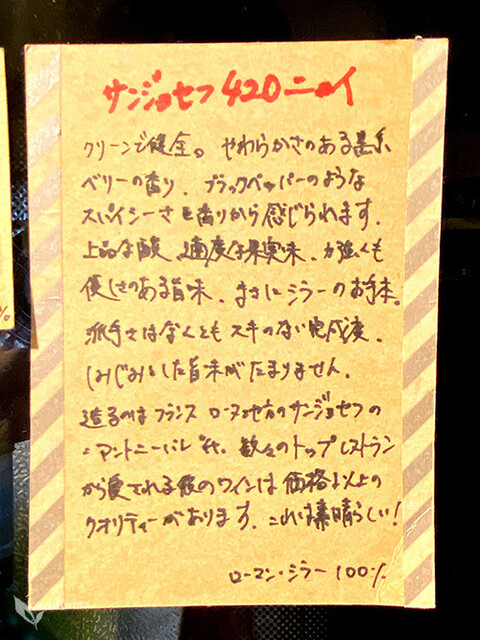 サンジョセフ 420ニュイ
クリーンで健全。やわらかさのある黒系
ベリーの香り、ブラックペッパーのような
スパイシーさも香りから感じられます。
上品な酸、適度な果実味、力強くも
優しさのある旨味、まさにシラーのお手本。
派手さはなくともスキのない完成度。
しみじみとした旨味がたまりません。
造るのはフランス ローヌ地方のサンジョセフの
アントニーバレ氏。数々のトップレストラン
から愛される彼のワインは価格以上の
クオリティーがあります。これは素晴らしい!
ローマン・シラー 100%
%